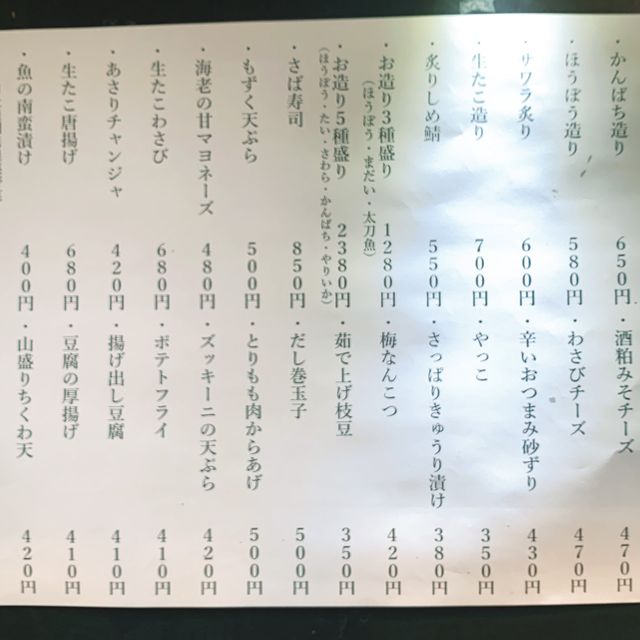 ・かんぱち造り 650円
・ほうぼう造り 580円
・サワラ炙り 600円
・生たこ造り 700円
・炙りしめ鯖 550円
・お造り3種盛り 1280円
(ほうぼう・まだい・太刀魚)
・お造り5種盛り 2380円
(ほうぼう・たい・さわら・かんぱち・やりいか)
・さば寿司 850円
・もずく天ぷら 500円
・海老の甘マヨネーズ 480円
・生たこわさび 680円
・あさりチャンジャ 420円
・生たこ唐揚げ 680円
・魚の南蛮漬け 400円
・酒粕みそチーズ 470円
・わさびチーズ 470円
・辛いおつまみ砂ずり 430円
・やっこ 350円
・さっぱりきゅうり漬け 380円
・梅なんこつ 420円
・茹で上げ枝豆 350円
・だし巻玉子 500円
・とりもも肉からあげ 500円
・ズッキーニの天ぷら 420円
・ポテトフライ 410円
・揚げ出し豆腐 410円
・豆腐の厚揚げ 410円
・山盛りちくわ天 420円